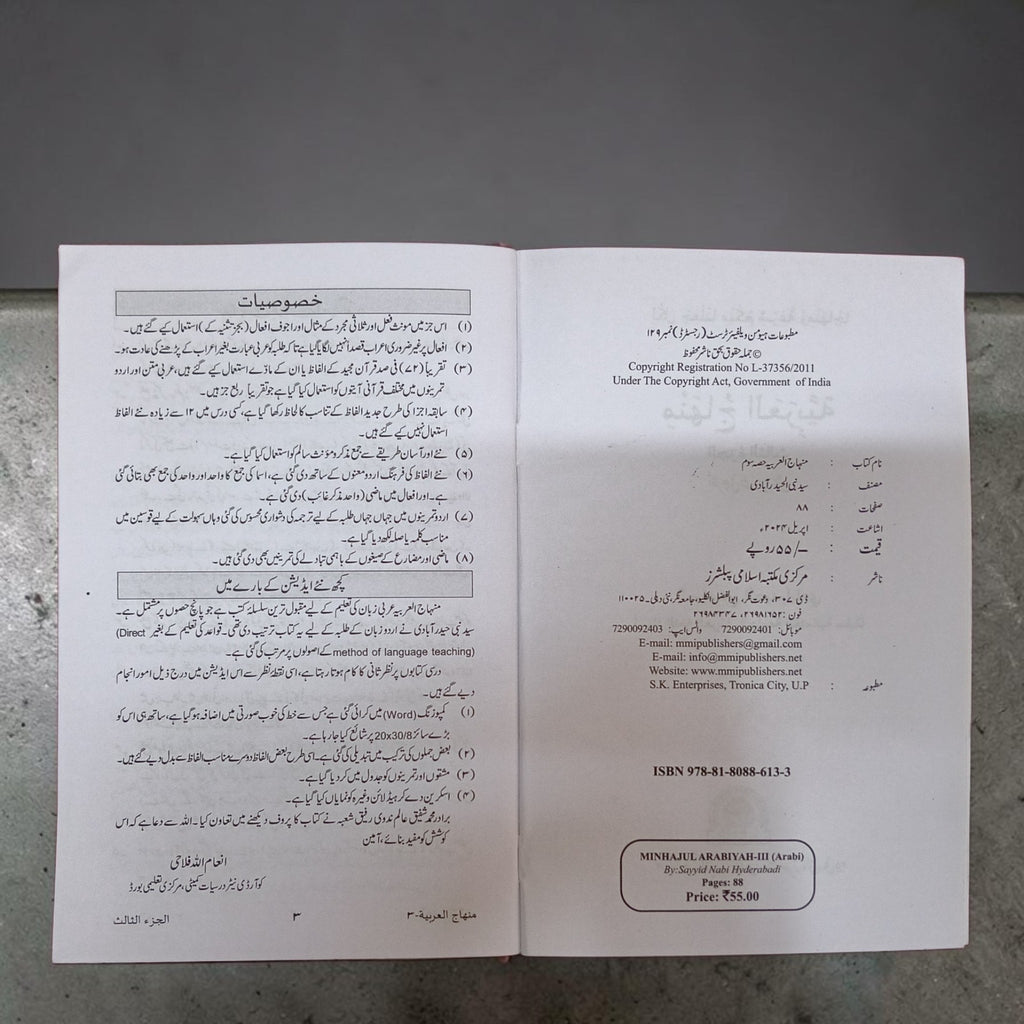 مطبوعات ہیومن ویلفیئر ٹرسٹ (رجسٹرڈ) نمبر ۱۲۹
© جملہ حقوق بحق ناشر محفوظ
Copyright Registration No L-37356/2011
Under The Copyright Act, Government of India
نام کتاب : منہاج العربیہ حصہ سوم
مصنف : سید نبی الحیدرآبادی
صفحات : ۸۸
اشاعت : اپریل ۲۰۲۴ء
قیمت : ۵۵/- روپے
ناشر : مرکزی مکتبہ اسلامی پبلشرز
ڈی ۳۰۷، دعوت نگر، ابوالفضل انکلیو، جامعہ نگر، نئی دہلی۔ ۱۱۰۰۲۵
فون: ۲۶۹۸۱۶۵۲، ۲۶۹۸۴۳۴۷
موبائل: 7290092401 واٹس ایپ: 7290092403
E-mail: mmipublishers@gmail.com
E-mail: info@mmipublishers.net
Website: www.mmipublishers.net
مطبوعہ : S.K. Enterprises, Tronica City, U.P
ISBN 978-81-8088-613-3
MINHAJUL ARABIYAH-III (Arabi)
By:Sayyid Nabi Hyderabadi
Pages: 88
Price: ₹55.00
خصوصیات
(۱) اس جز میں مونث فعل اور ثلاثی مجرد کے مثال اور اجوف افعال (بجز تثنیہ کے) استعمال کیے گئے ہیں۔
(۲) افعال پر غیر ضروری اعراب قصداً نہیں لگایا گیا ہے تاکہ طلبہ کو عربی عبارت بغیر اعراب کے پڑھنے کی عادت ہو۔
(۳) تقریباً (۷۲) فی صد قرآن مجید کے الفاظ یا ان کے مادے استعمال کیے گئے ہیں، عربی متن اور اردو
تمرینوں میں مختلف قرآنی آیتوں کو استعمال کیا گیا ہے جو تقریباً ربع جز ہیں۔
(۴) سابقہ اجزا کی طرح جدید الفاظ کے تناسب کا لحاظ رکھا گیا ہے، کسی درس میں ۱۲ سے زیادہ نئے الفاظ
استعمال نہیں کیے گئے ہیں۔
(۵) نئے اور آسان طریقے سے جمع مذکر و مؤنث سالم کو استعمال کیا گیا ہے۔
(۶) نئے الفاظ کی فرہنگ اردو معنوں کے ساتھ دی گئی ہے، اسما کی جمع کا واحد اور واحد کی جمع بھی بتائی گئی
ہے۔ اور افعال میں ماضی (واحد مذکر غائب) دی گئی ہے۔
(۷) اردو تمرینوں میں جہاں جہاں طلبہ کے لیے ترجمہ کی دشواری محسوس کی گئی وہاں سہولت کے لیے قوسین میں
مناسب کلمہ یا صلہ لکھ دیا گیا ہے۔
(۸) ماضی اور مضارع کے صیغوں کے باہمی تبادلے کی تمرینیں بھی دی گئی ہیں۔
کچھ نئے ایڈیشن کے بارے میں
منہاج العربیہ عربی زبان کی تعلیم کے لیے مقبول ترین سلسلۂ کتب ہے جو پانچ حصوں پر مشتمل ہے۔
سید نبی حیدرآبادی نے اردو زبان کے طلبہ کے لیے یہ کتاب ترتیب دی تھی۔ قواعد کی تعلیم کے بغیر (Direct
method of language teaching) کے اصولوں پر مرتب کی گئی ہے۔
درسی کتابوں پر نظر ثانی کا کام ہوتا رہتا ہے، اسی نقطۂ نظر سے اس ایڈیشن میں درج ذیل امور انجام
دیے گئے ہیں۔
(۱) کمپوزنگ (Word) میں کرائی گئی ہے جس سے خط کی خوب صورتی میں اضافہ ہو گیا ہے، ساتھ ہی اس کو
بڑے سائز 20x30/8 پر شائع کیا جا رہا ہے۔
(۲) بعض جملوں کی ترکیب میں تبدیلی کی گئی ہے۔ اسی طرح بعض الفاظ دوسرے مناسب الفاظ سے بدل دیے گئے ہیں۔
(۳) مشقوں اور تمرینوں کو جدول میں کر دیا گیا ہے۔
(۴) اسکرین دے کر ہیڈ لائن وغیرہ کو نمایاں کیا گیا ہے۔
برادر محمد شفیق عالم ندوی رفیق شعبہ نے کتاب کا پروف دیکھنے میں تعاون کیا۔ اللہ سے دعا ہے کہ اس
کوشش کو مفید بنائے، آمین
انعام اللہ فلاحی
کوآرڈی نیٹر درسیات کمیٹی، مرکزی تعلیمی بورڈ
منہاج العربیة-۳ ۳ الجزء الثالث